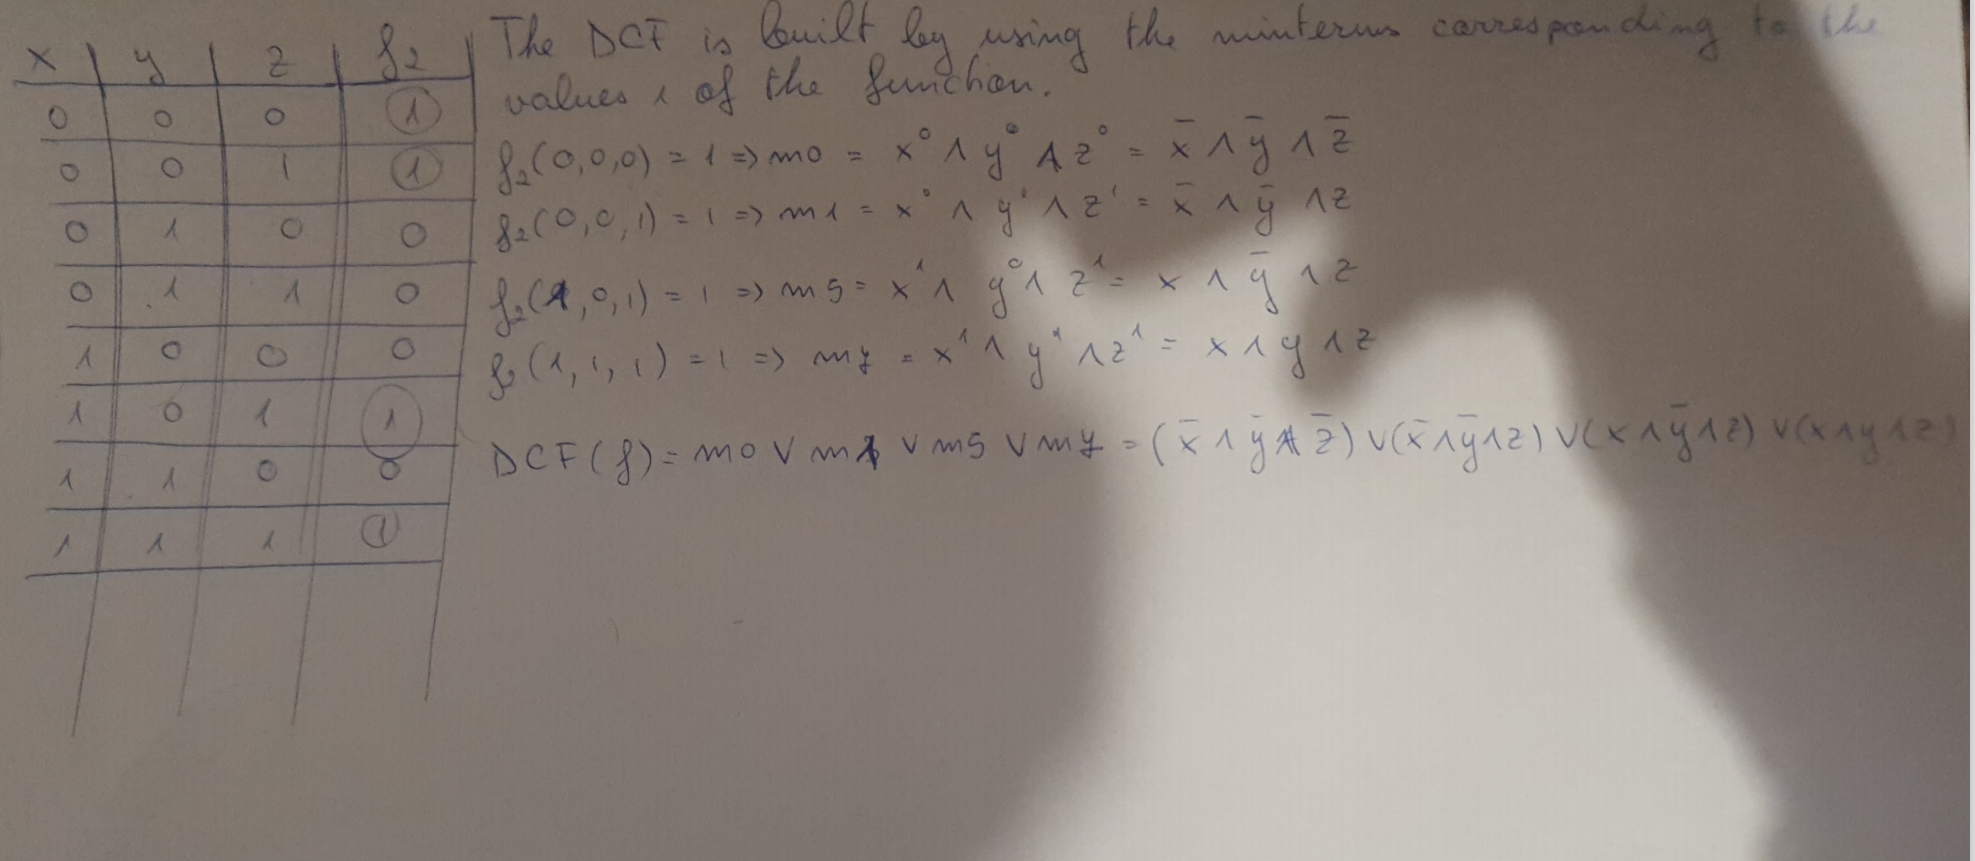 x y z f₂
0 0 0 1
0 0 1 1
0 1 0 0
0 1 1 0
1 0 0 0
1 0 1 1
1 1 0 0
1 1 1 1
The DCF is built by using the minterms corresponding to the
values 1 of the function.
f₂(0,0,0) = 1 => m0 = x⁰ ∧ y⁰ ∧ z⁰ = x̄ ∧ ȳ ∧ z̄
f₂(0,0,1) = 1 => m1 = x⁰ ∧ y⁰ ∧ z¹ = x̄ ∧ ȳ ∧ z
f₂(1,0,1) = 1 => m5 = x¹ ∧ y⁰ ∧ z¹ = x ∧ ȳ ∧ z
f₂(1,1,1) = 1 => m7 = x¹ ∧ y¹ ∧ z¹ = x ∧ y ∧ z
DCF(f) = m0 ∨ m1 ∨ m5 ∨ m7 = (x̄ ∧ ȳ ∧ z̄) ∨ (x̄ ∧ ȳ ∧ z) ∨ (x ∧ ȳ ∧ z) ∨ (x ∧ y ∧ z)